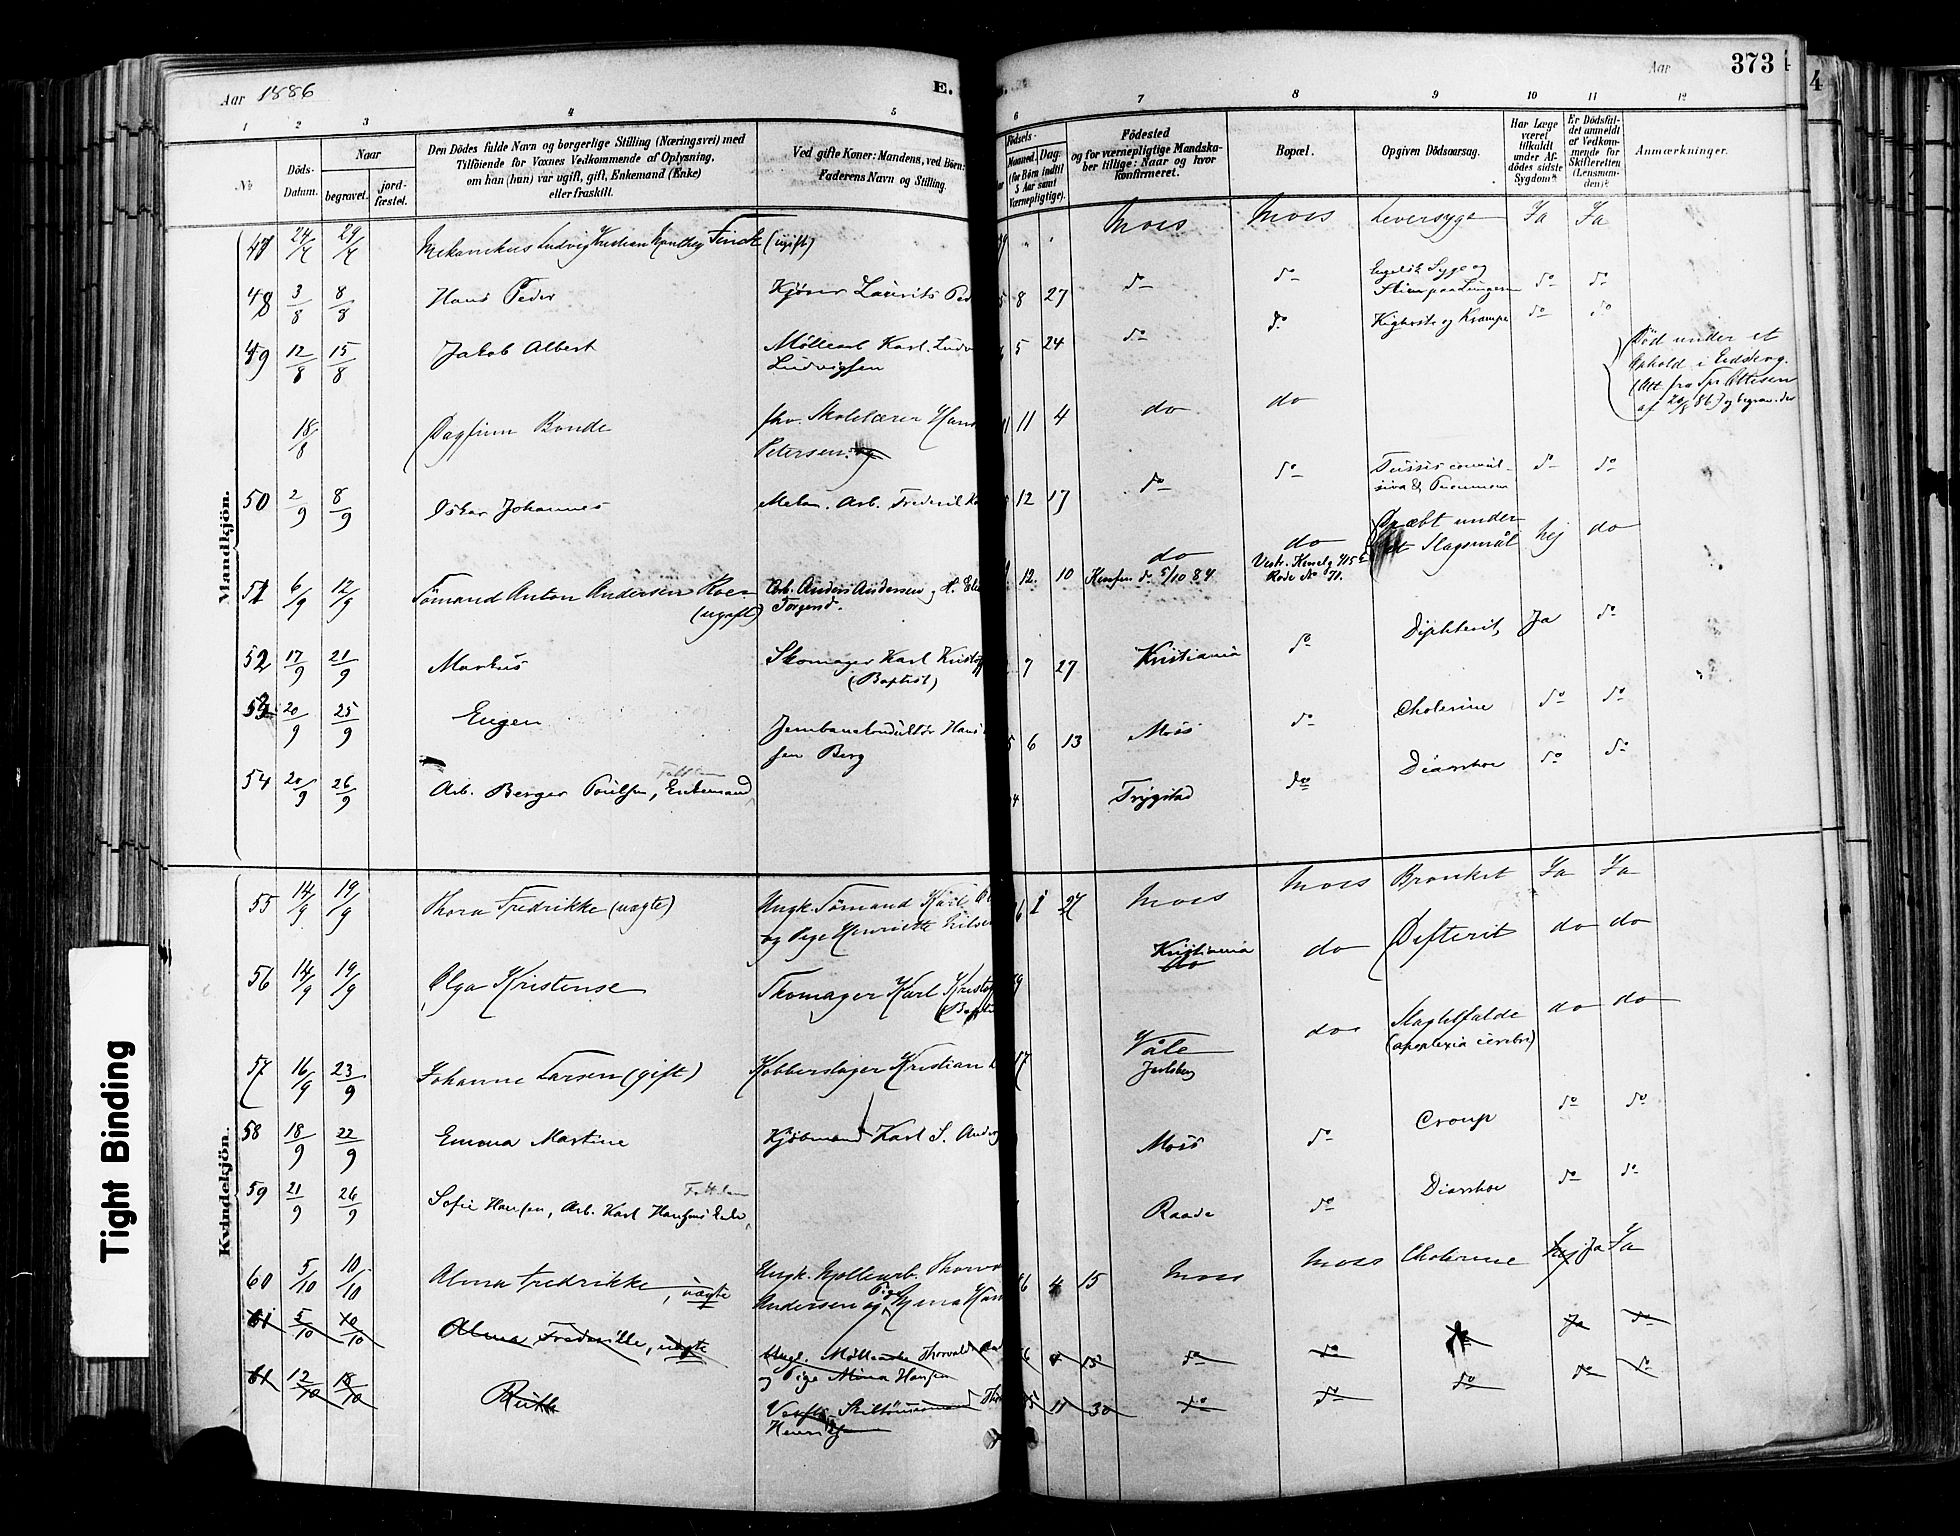 Aar 1886
E.
Aar
373
4
1 2 3 4 5 6 7 8 9 10 11 12
№
Döds-Datum.
Naar
begravet.
jordfæstet.
Den Dödes fulde Navn og borgerlige Stilling (Næringsvei) med
Tilföiende for Voxnes Vedkommende af Oplysning,
om han (hun) var ugift, gift, Enkemand (Enke)
eller fraskilt.
Ved gifte Koner: Mandens, ved Börn:
Faderens Navn og Stilling.
Födsels-
Maaned. Dag.
(for Börn indtil
5 Aar samt
Værnepligtige).
Födested
og for værnepligtige Mandska-
ber tillige: Naar og hvor
konfirmeret.
Bopæl.
Opgiven Dödsaarsag.
Har Læge
været
tilkaldt
under Af-
dödes sidste
Sygdom?
Er Dödsfal-
det anmeldt
af Vedkom-
mende for
Skifteretten
(Lensman-
den)?
Anmærkninger.
Mandkjön.
47 24/7 29/7 Mekanikus Ludvig Kristian Finck (ugift) Moss Moss Leversyge Ja Ja
48 3/8 8/8 Hans Peder Kjører Laurits Ped 8 27 do do Engelsk Syge og do do
Slim paa Lungerne
49 12/8 15/8 Jakob Albert Møllearb. Karl Ludv 5 24 do do Kighoste og Krampe do do
Ludvigsen
18/8 Dagfinn Bonde fhv. Skolelærer Hans 11 4 do do
Petersen
Død under et
Ophold i Eidsberg.
50 2/9 8/9 Oskar Johannes Mekan. Arb. Frederik 12 17 do do Tussis convul- do do
siva & Pneumoni
51 6/9 12/9 Sømand Anton Andersen Roer Arb. Anders Andersen og H. 12. 10 do do Dræbt under Nej do
(ugift) Jørgensd. Konf. do 5/10 84 Rode No 71. et Slagsmål
52 17/9 21/9 Markus Skomager Karl Kristof 7 27 Kristiania do Diphterit, Ja do
(Baptist)
53 20/9 25/9 Eugen Jernbanekonduktør Hans 6 13 Moss do Cholerine do do
sen Berg
54 20/9 26/9 Arb. Berger Poulsen, Enkemand Trygstad do Diarrhoe do do
Fattiglem
Kvindekjön.
55 14/9 19/9 Thora Fredrikke (uægte) Ungk. Sømand Karl 1 27 Moss Moss Bronkit Ja Ja
og Pige Henriette Nilsen
56 14/9 19/9 Olga Kristense Skomager Karl Kristof Kristiania do do Difterit do do
(Baptist
57 16/9 23/9 Johanne Larsen (gift) Kobberslager Kristian 17 Våle do Slagtilfælde do do
Jarlsberg (apoplexia cerebri)
58 18/9 22/9 Emma Martine Kjøbmand Karl S. Anders Moss do Croup do do
59 21/9 26/9 Sofie Hansen, Arb. Karl Hansens Enke, Raade do Diarrhoe do do
60 5/10 10/10 Alma Fredrikke, uægte Ungk. Møllearb. Thorv 6 4 15 Moss Moss Cholerine Nej Ja Ja
Andersen og Pige Mina Han
61 5/10 10/10 Alma Frederikke, uægte Ungk. Møllearb. Thorvald 6 4 15 do do Ja do
og Pige Mina Hansen
61 12/10 18/10 Ruth 11 30 do do do do do
Henriksen
Tight Binding